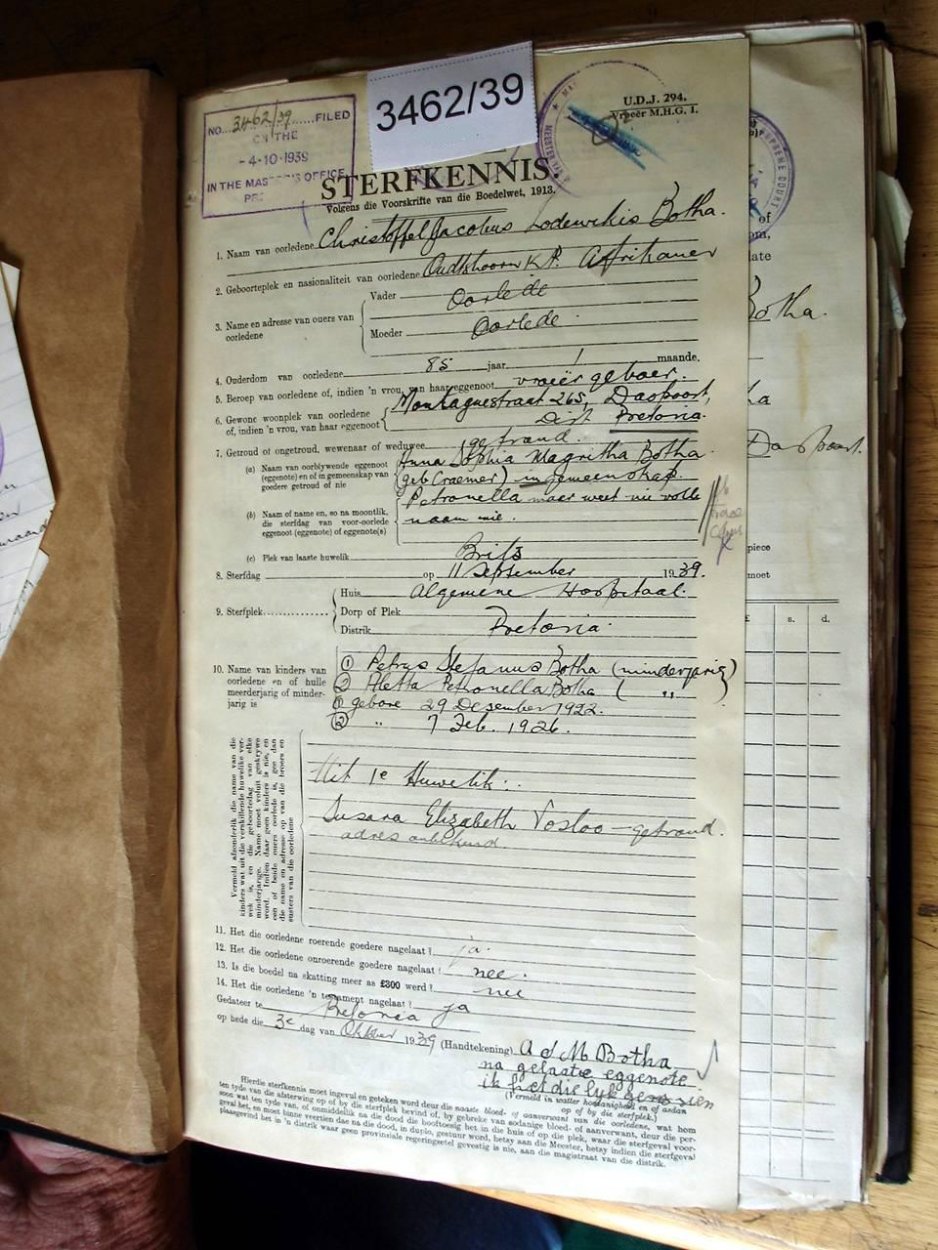 3462/39
NO. 3462/39 FILED
ON THE
-4-10-1939
IN THE MASTER'S OFFICE
U.D.J. 294.
Vroeër M.H.G. I.
STERFKENNIS.
Volgens die Voorskrifte van die Boedelwet, 1913.
1. Naam van oorledene Christoffel Jacobus Lodewikis Botha.
2. Geboorteplek en nasionaliteit van oorledene Oudtshoorn K.P. Afrikaner
3. Name en adresse van ouers van oorledene
Vader Oorlede
Moeder Oorlede
4. Ouderdom van oorledene 85 jaar 1 maande.
5. Beroep van oorledene of, indien 'n vrou, van haar eggenoot vroeër geboer.
6. Gewone woonplek van oorledene of, indien 'n vrou, van haar eggenoot
Montaguestraat 265, Daspoort,
Dist. Pretoria.
7. Getroud of ongetroud, wewenaar of weduwee getroud.
(a) Naam van oorblywende eggenoot (eggenote) en of in gemeenskap van goedere getroud of nie
Anna Sophia Magritha Botha
(geb Craemer) in gemeenskap.
(b) Naam of name en, so na moontlik, die sterfdag van voor-oorlede eggenoot (eggenote) of eggenote(s)
Petronella maar weet nie volle
naam nie.
(c) Plek van laaste huwelik Brits
8. Sterfdag op 11 September 1939.
9. Sterfplek
Huis Algemene Hospitaal.
Dorp of Plek
Distrik Pretoria.
10. Name van kinders van oorledene en of hulle meerderjarig of minderjarig is
① Petrus Stefanus Botha (minderjarig)
② Aletta Petronella Botha ( " )
① gebore 29 Desember 1922.
② " 7 Feb. 1926.
Vermeld afsonderlik die name van die kinders wat uit die verskillende huwelike verwek is, en die geboortedag van elke minderjarige. Name moet voluit geskrywe word. Indien daar geen kinders is nie, en een of beide ouers oorlede is, gee dan die name en adresse op van die broers en susters van die oorledene
Uit 1e Huwelik:
Susara Elizabeth Vosloo — getroud.
adres onbekend
11. Het die oorledene roerende goedere nagelaat? ja.
12. Het die oorledene onroerende goedere nagelaat? nee.
13. Is die boedel na skatting meer as £300 werd? nee
14. Het die oorledene 'n testament nagelaat? ja
Gedateer te Pretoria
op hede die 3e dag van Oktober 1939 (Handtekening) A S M Botha
na gelaate eggenote
ik het die lyk gesien
(Vermeld in watter hoedanigheid en of aldan op of by die sterfplek.)
Hierdie sterfkennis moet ingevul en geteken word deur die naaste bloed- of aanverwant van die oorledene, wat hom
ten tyde van die afsterwing op of by die sterfplek bevind of, by gebreke van sodanige bloed- of aanverwant, deur die persoon
geval het, en moet binne veertien dae na die dood, in duplo, gestuur word, betsy aan die Meester, betsy indien die sterfgeval
plaasgevind het in 'n distrik waar geen provinsiale regeringsetel gevestig is nie, aan die magistraat van die distrik.
Botha.
Daspoort.
s. d.